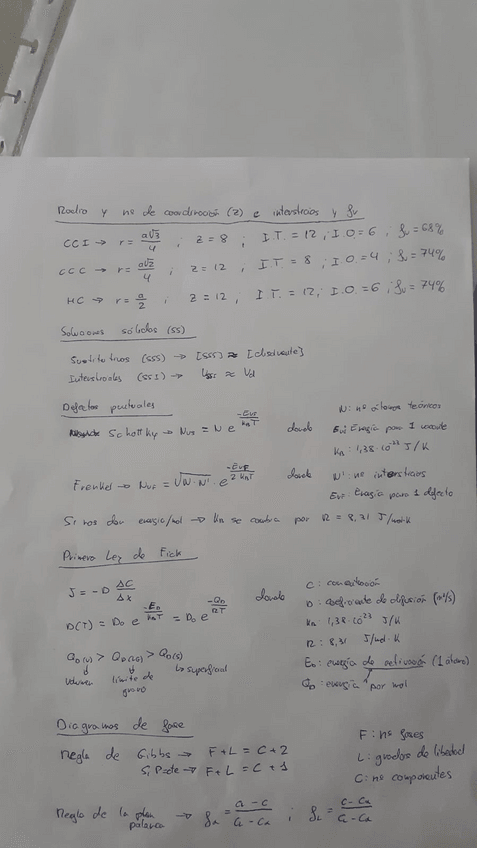 Radio y nº de coordinación (z) e intersticios y fv
CCI → r = a√3/4 ; z = 8 ; I.T. = 12 ; I.O = 6 ; fv = 68%
CCC → r = a√2/4 ; z = 12 ; I.T. = 8 ; I.O = 4 ; fv = 74%
HC → r = a/2 ; z = 12 ; I.T. = 12 ; I.O. = 6 ; fv = 74%
Soluciones sólidas (ss)
Sustitutivos (SSS) → [SSS] ≈ [disolvente]
Intersticiales (SSI) → ≈ Vd
Defectos puntuales
Schottky → Nvs = N e^(-Evs/KBT) donde
N: nº átomos teóricos
Ev: Energía para 1 vacante
KB: 1,38·10^-23 J/K
Frenkel → NvF = √(N·N') · e^(-EvF/2KBT) donde
N': nº intersticios
EvF: Energía para 1 defecto
Si nos dan energía/mol → KB se cambia por R = 8,31 J/mol·K
Primera Ley de Fick
J = -D ΔC/Δx
D(T) = D0 e^(-ED/KBT) = D0 e^(-QD/RT) donde
C: concentración
D: coeficiente de difusión (m²/s)
KB: 1,38·10^23 J/K
R: 8,31 J/mol·K
ED: energía de activación (1 átomo)
QD: energía por mol
QD(v) > QD(LG) > QD(s)
volumen límite de grano ↳ superficial
Diagramas de fase
Regla de Gibbs → F + L = C + 2
Si P=cte → F + L = C + 1
F: nº fases
L: grados de libertad
C: nº componentes
Regla de la palanca → fα = (CL - C)/(CL - Cα) ; fL = (C - Cα)/(CL - Cα)